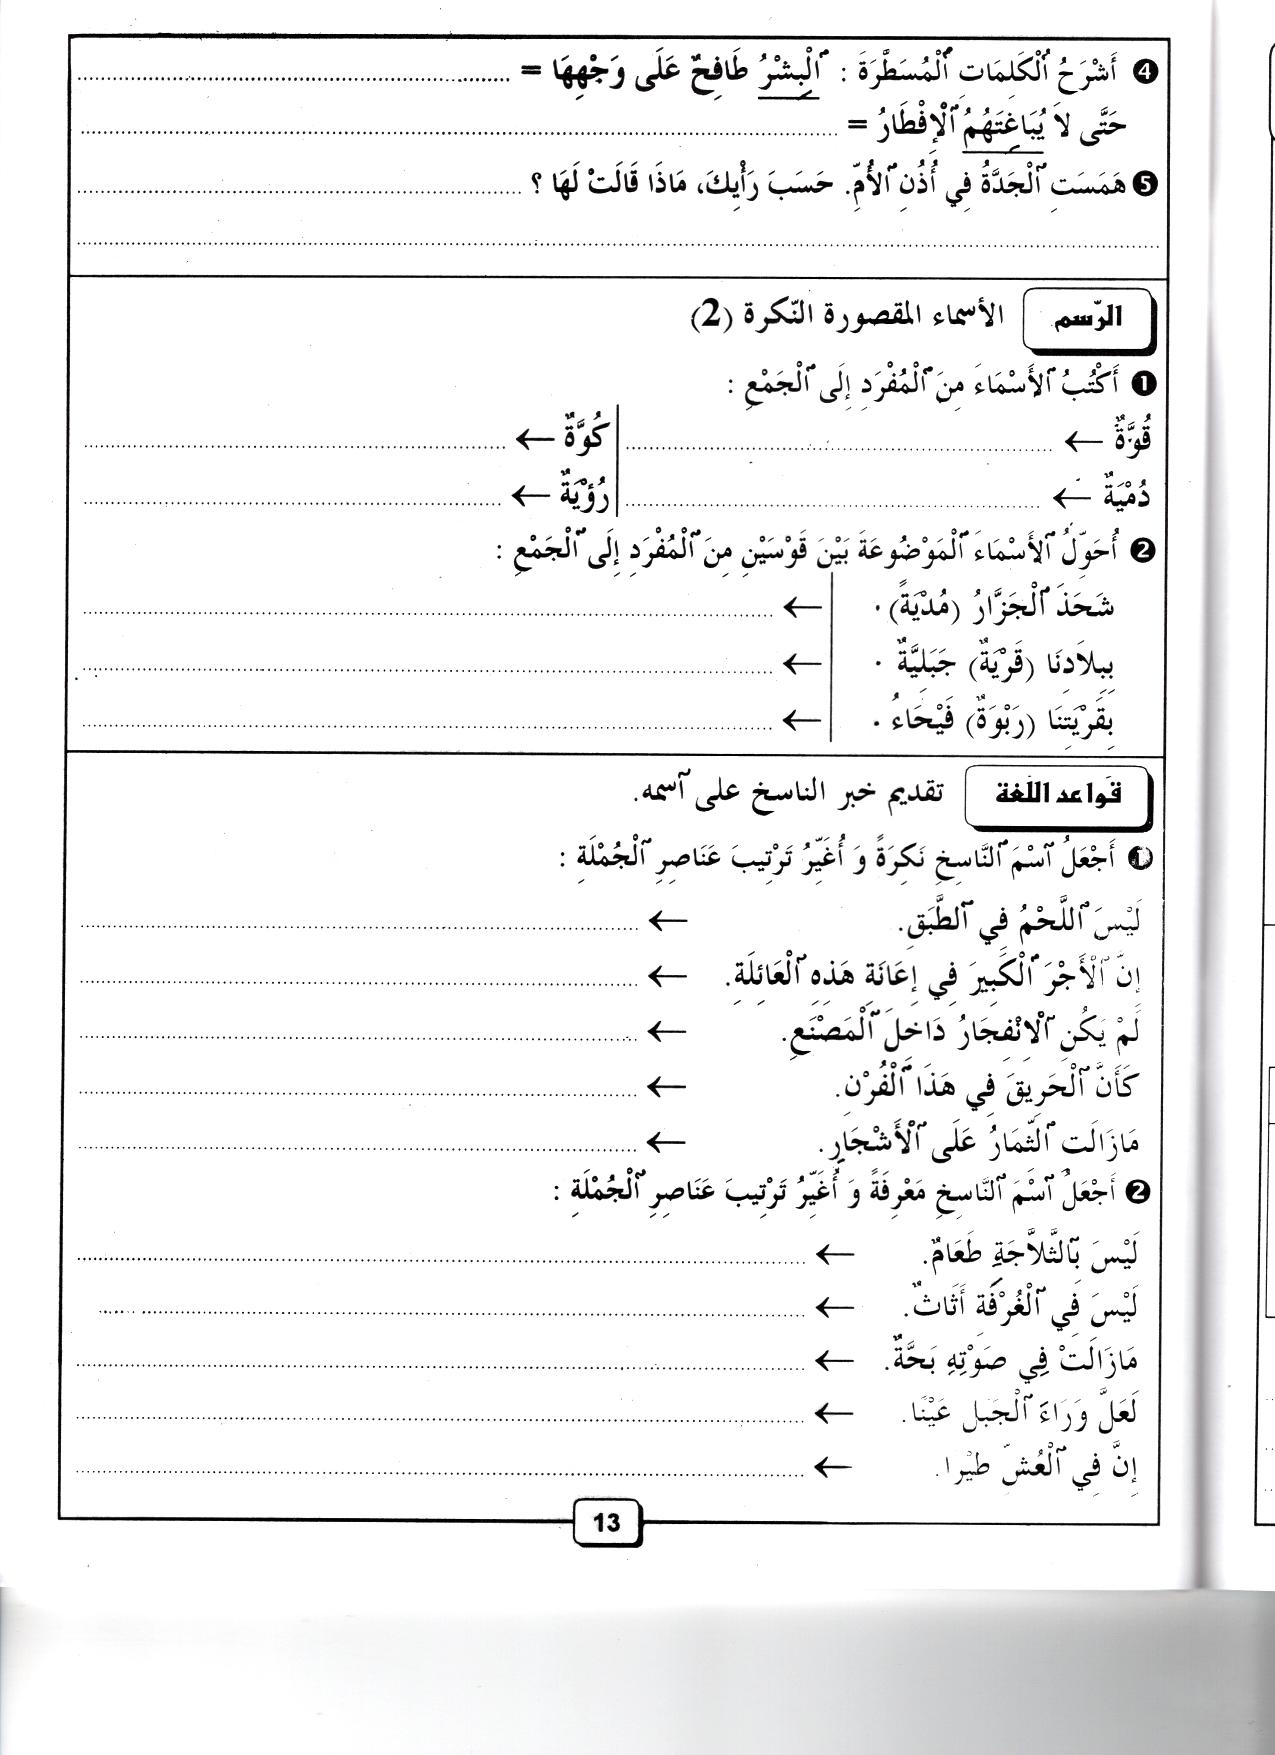 ❹ أَشْرَحُ ٱلْكَلِمَاتِ ٱلْمُسَطَّرَةَ : ٱلْبِشْرُ طَافِحٌ عَلَى وَجْهِهَا = ........................
حَتَّى لاَ يُبَاغِتَهُمُ ٱلْإِفْطَارُ = ........................
❺ هَمَسَتِ ٱلْجَدَّةُ فِي أُذُنِ ٱلأُمِّ. حَسَبَ رَأْيِكَ، مَاذَا قَالَتْ لَهَا ؟ ........................
........................
الرّسم الأسماء المقصورة النّكرة (2)
❶ أَكْتُبُ ٱلأَسْمَاءَ مِنَ ٱلْمُفْرَدِ إِلَى ٱلْجَمْعِ :
قُوَّةٌ ← ........................ كُوَّةٌ ← ........................
دُمْيَةٌ ← ........................ رُؤْيَةٌ ← ........................
❷ أُحَوِّلُ ٱلأَسْمَاءَ ٱلْمَوْضُوعَةَ بَيْنَ قَوْسَيْنِ مِنَ ٱلْمُفْرَدِ إِلَى ٱلْجَمْعِ :
شَحَذَ ٱلْجَزَّارُ (مُدْيَةً). ← ........................
بِبِلاَدِنَا (قَرْيَةٌ) جَبَلِيَّةٌ . ← ........................
بِقَرْيَتِنَا (رَبْوَةٌ) فَيْحَاءُ . ← ........................
قواعد اللّغة تقديم خبر الناسخ على ٱسمه.
❶ أَجْعَلُ ٱسْمَ ٱلنَّاسِخِ نَكِرَةً وَ أُغَيِّرُ تَرْتِيبَ عَنَاصِرِ ٱلْجُمْلَةِ :
لَيْسَ ٱللَّحْمُ فِي ٱلطَّبَقِ. ← ........................
إِنَّ ٱلْأَجْرَ ٱلْكَبِيرَ فِي إِعَانَةِ هَذِهِ ٱلْعَائِلَةِ. ← ........................
لَمْ يَكُنِ ٱلْاِنْفِجَارُ دَاخِلَ ٱلْمَصْنَعِ. ← ........................
كَأَنَّ ٱلْحَرِيقَ فِي هَذَا ٱلْفُرْنِ. ← ........................
مَازَالَتِ ٱلثِّمَارُ عَلَى ٱلْأَشْجَارِ. ← ........................
❷ أَجْعَلُ ٱسْمَ ٱلنَّاسِخِ مَعْرِفَةً وَ أُغَيِّرُ تَرْتِيبَ عَنَاصِرِ ٱلْجُمْلَةِ :
لَيْسَ بِٱلثَّلاَّجَةِ طَعَامٌ. ← ........................
لَيْسَ فِي ٱلْغُرْفَةِ أَثَاثٌ. ← ........................
مَازَالَتْ فِي صَوْتِهِ بَحَّةٌ. ← ........................
لَعَلَّ وَرَاءَ ٱلْجَبَلِ عَيْنًا. ← ........................
إِنَّ فِي ٱلْعُشِّ طَيْرا. ← ........................
13